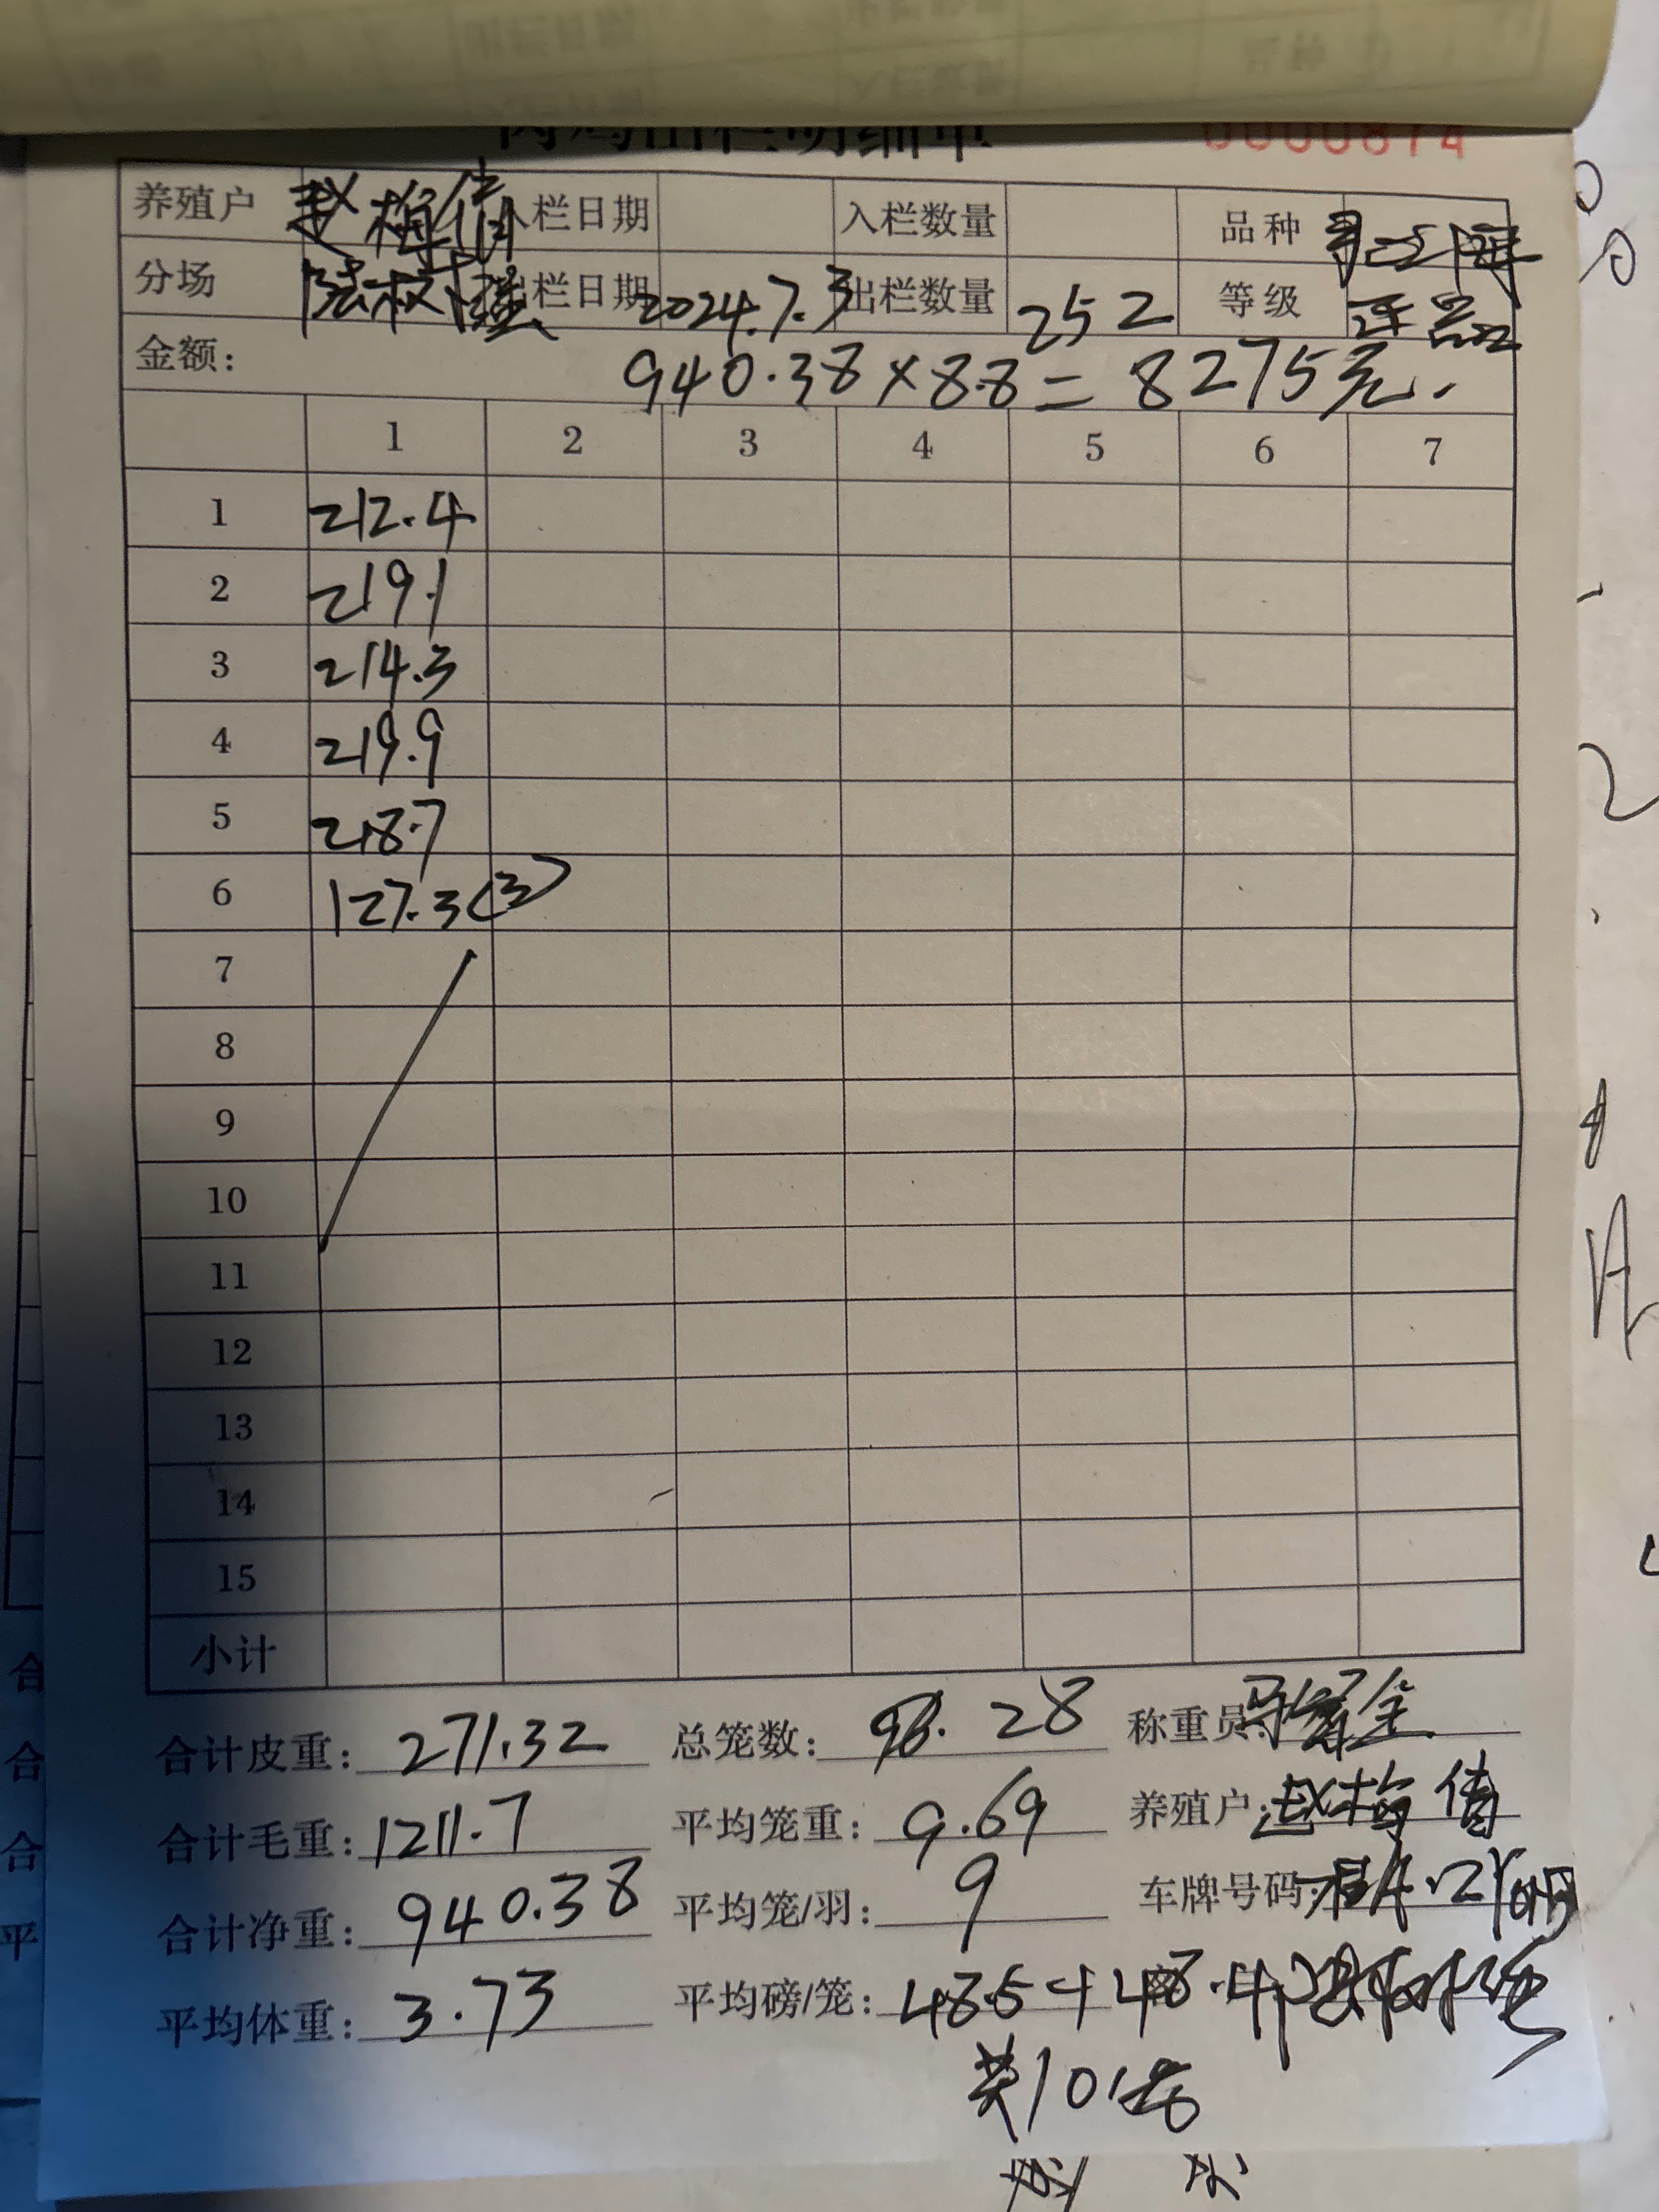 0000874
养殖户 赵梅倩 入栏日期 入栏数量 品种
分场 出栏日期 2024.7.3 出栏数量 252 等级 正品
金额: 940.38×8.8=8275元.
1 2 3 4 5 6 7
1 212.4
2 219.1
3 214.3
4 219.9
5 218.7
6 127.3(3)
7
8
9
10
11
12
13
14
15
小计
合计皮重: 271.32 总笼数: 28 称重员:
合计毛重: 1211.7 平均笼重: 9.69 养殖户: 赵梅倩
合计净重: 940.38 平均笼/羽: 9 车牌号码:
平均体重: 3.73 平均磅/笼: 48.5+48.4